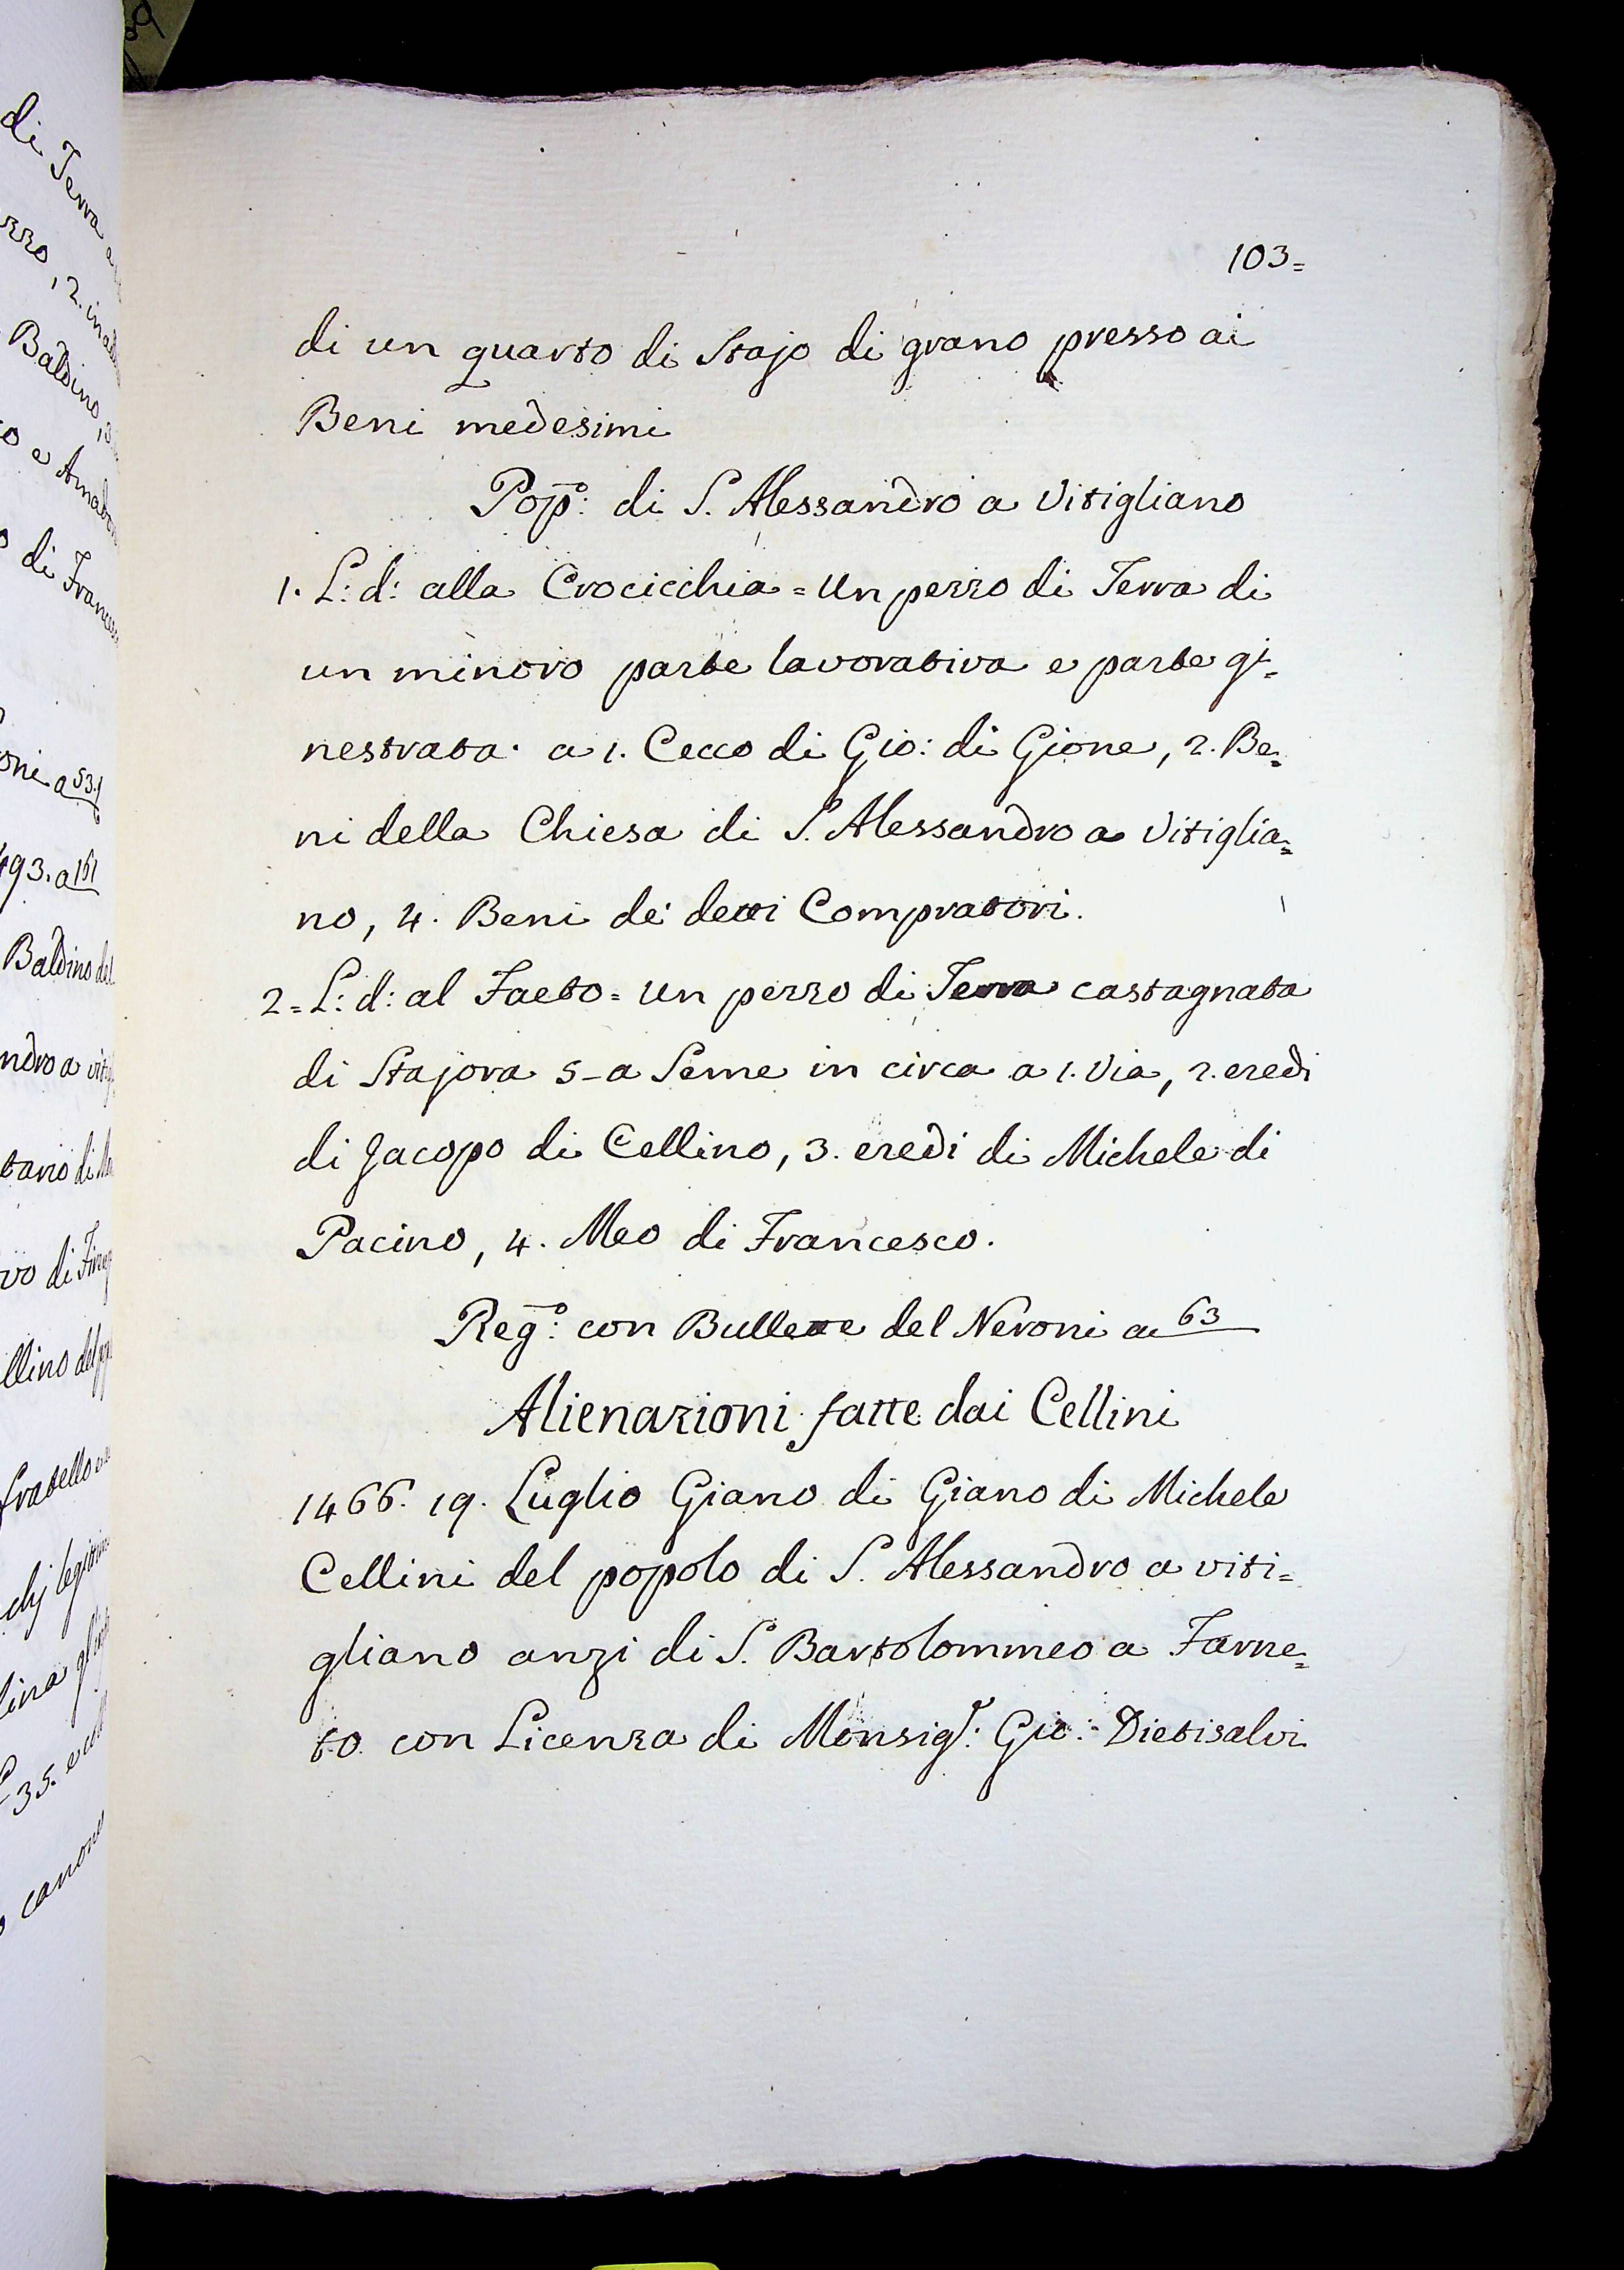 di Terra
Baldino,
di
493. a 161
Baldino del
fratello
canone
103=
di un quarto di Stajo di grano presso ai
Beni medesimi
Popº: di S. Alessandro a Vitigliano
1. L: d: alla Crocicchia = Un pezzo di Terra di
un minoro parte lavorativa e parte gi=
nestrata. a 1. Cecco di Gio: di Gione, 2. Be=
ni della Chiesa di S. Alessandro a Vitiglia=
no, 4. Beni de' detti Compratori.
2= L: d: al Faeto = Un pezzo di Terra castagnata
di Stajora 5 - a Seme in circa a 1. Via, 2. eredi
di Jacopo di Cellino, 3. eredi di Michele di
Pacino, 4. Meo di Francesco.
Regº: con Bullette del Neroni a 63
Alienazioni fatte dai Cellini
1466. 19. Luglio Giano di Giano di Michele
Cellini del popolo di S. Alessandro a viti=
gliano anzi di S. Bartolommeo a Farne=
to con Licenza di Monsigr: Gio: Dietisalvi